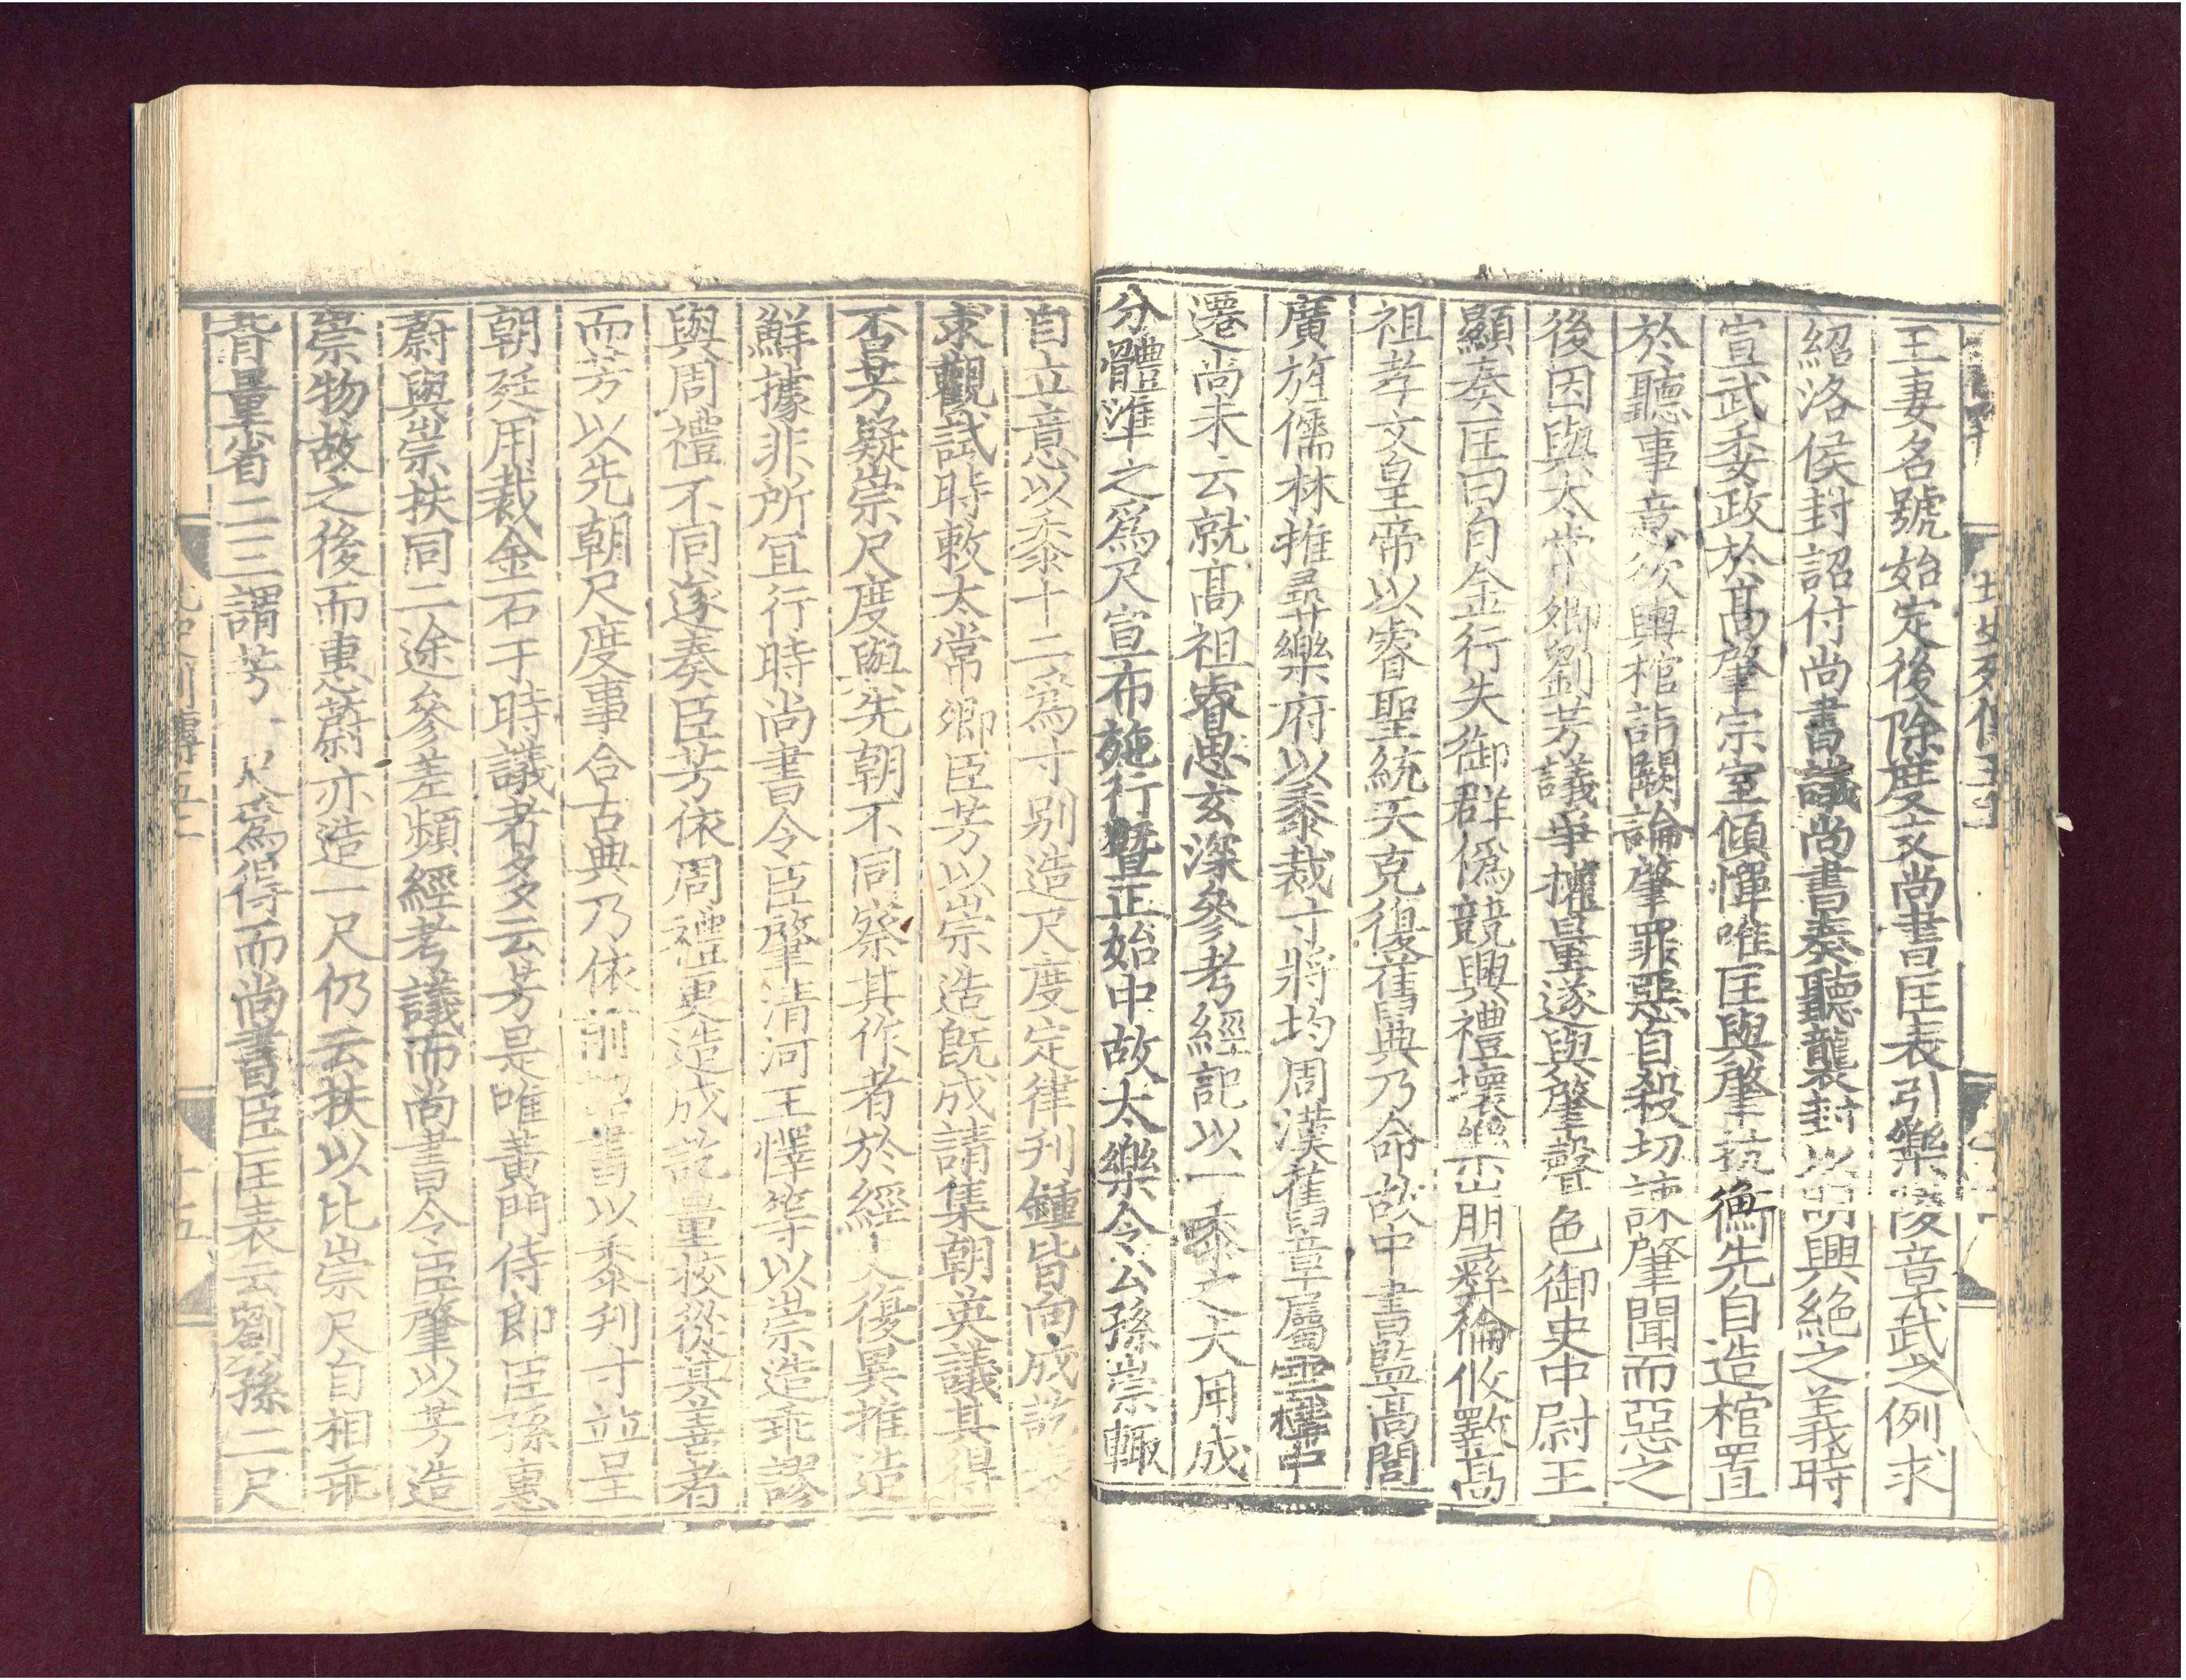 王妻名號始定後除度支尚書匡表引樂陵章武之例求
紹洛侯封詔付尚書議尚書奏聽襲封以明興絶之義時
宣武委政於高肇宗室傾憚唯匡與肇抗衡先自造棺置
於聽事意欲輿棺詣闕論肇罪惡自殺切諫肇聞而惡之
後因與太常卿劉芳議爭權量遂與肇聲色御史中尉王
顯奏匡曰自金行失御群僞競興禮壞樂崩彛倫攸斁高
祖孝文皇帝以睿聖統天克復舊典乃命故中書監高閭
廣旌儒林推尋樂府以黍裁寸將均周漢舊章屬雲構中
遷尚未云就高祖睿思玄深參考經記以一黍之大用成
分體準之爲尺宣布施行暨正始中故太樂令公孫崇輙
自立意以黍十二爲寸别造尺度定律刋鍾皆向成訖表
求觀試時敕太常卿臣芳以崇造既成請集朝英議其得
否芳疑崇尺度與先朝不同察其作者於經史復異推造
鮮據非所宜行時尚書令臣肇清河王懌等以崇造乖謬
與周禮不同遂奏臣芳依周禮更造成訖量校從其善者
而芳以先朝尺度事合古典乃依前詔書以黍刋寸並呈
朝廷用裁金石于時議者多云芳是唯黃門侍郎臣孫惠
蔚與崇扶同二途參差頻經考議而尚書令臣肇以芳造
崇物故之後而惠蔚亦造一尺仍云扶以比崇尺自相乖
背量省二三謂芳 爲得而尚書臣匡表云劉孫二尺
十五